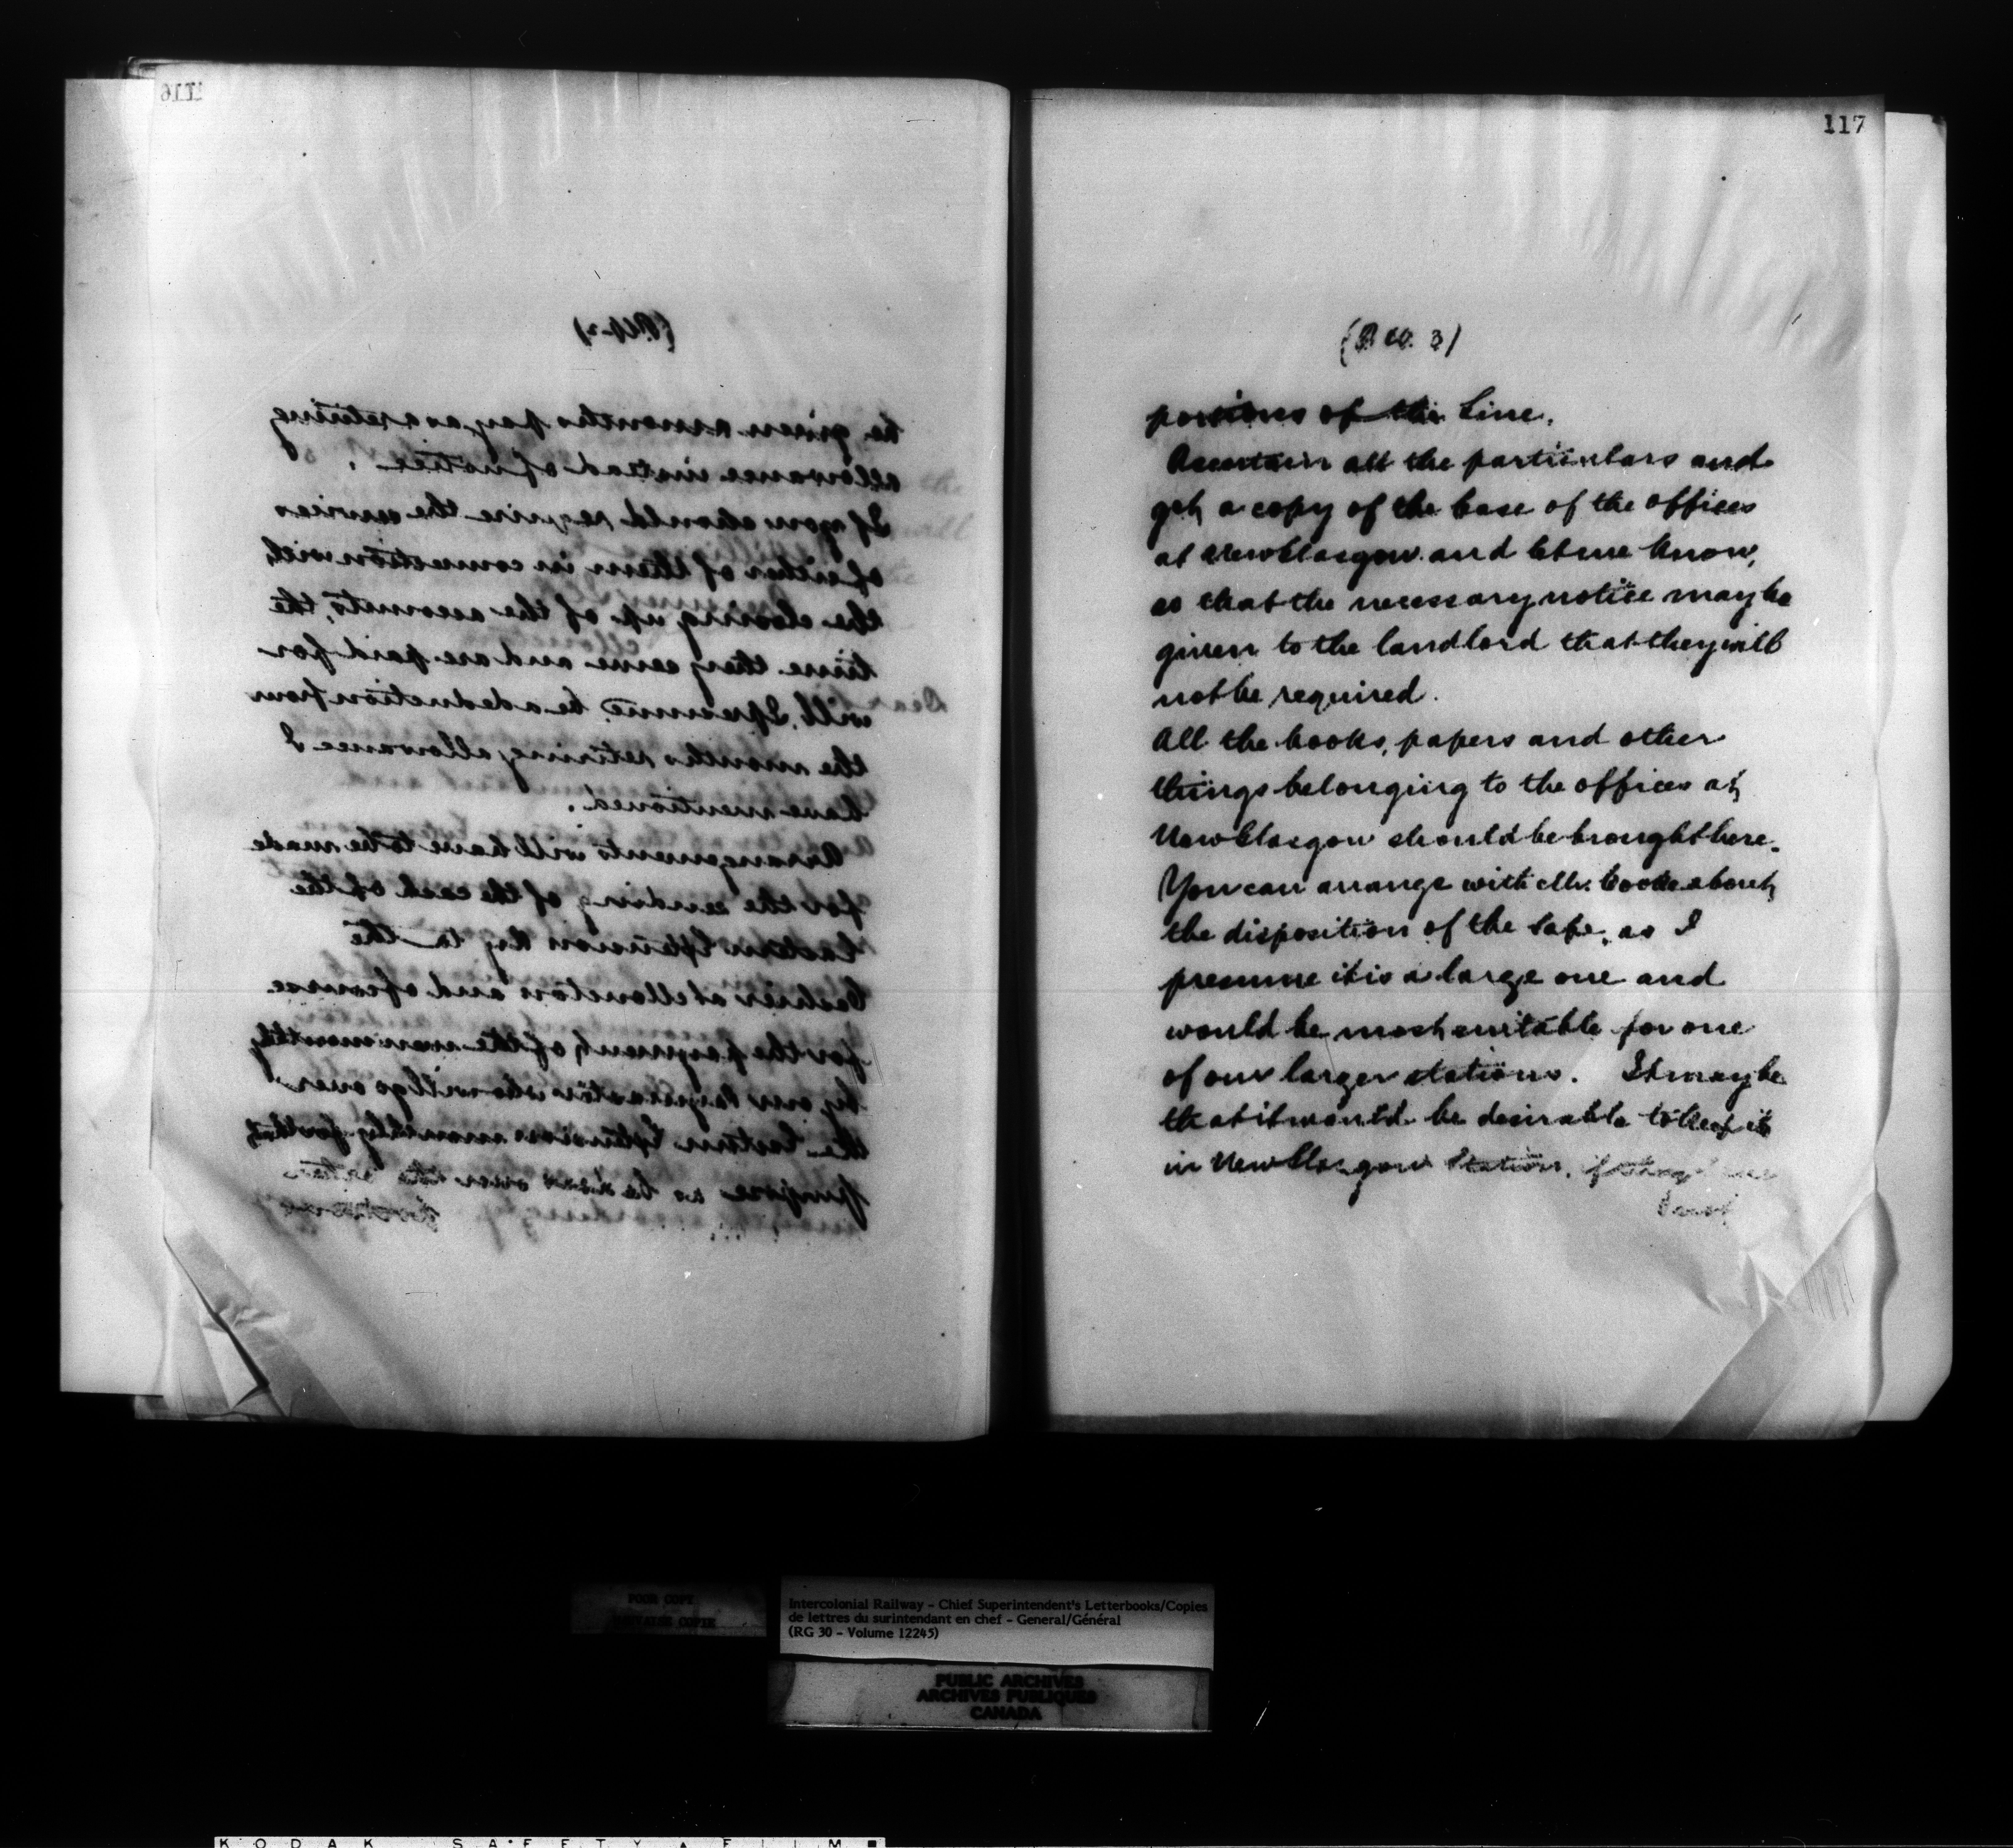 116
be given a months pay as a retiring
allowance instead of notice.
If you should require the services
of either of them in connection with
the closing up of the accounts, the
time they serve and are paid for
will, I presume, be a deduction from
the months retiring allowance I
have mentioned.
Arrangements will have to be made
for the sending of the cash of the
Eastern Extension Ry to the
Cashier at Moncton and of course
for the payment of the men monthly
by our Paymaster who will go over
the Eastern Extension monthly for that
purpose as he does over the other
portions
117
portions of the Line.
Ascertain all the particulars and
get a copy of the lease of the offices
at New Glasgow and let me know,
so that the necessary notice may be
given to the landlord that they will
not be required.
All the books, papers and other
things belonging to the offices at
New Glasgow should be brought here.
You can arrange with Mr. Cooke about
the disposition of the safe, as I
presume it is a large one and
would be most suitable for one
of our larger stations. It may be
that it would be desirable to keep it
in New Glasgow Station, if they
POOR COPY
Intercolonial Railway - Chief Superintendent's Letterbooks/Copies
de lettres du surintendant en chef - General/Général
(RG 30 - Volume 12245)
PUBLIC ARCHIVES
ARCHIVES PUBLIQUES
CANADA
KODAK SAFETY FILM